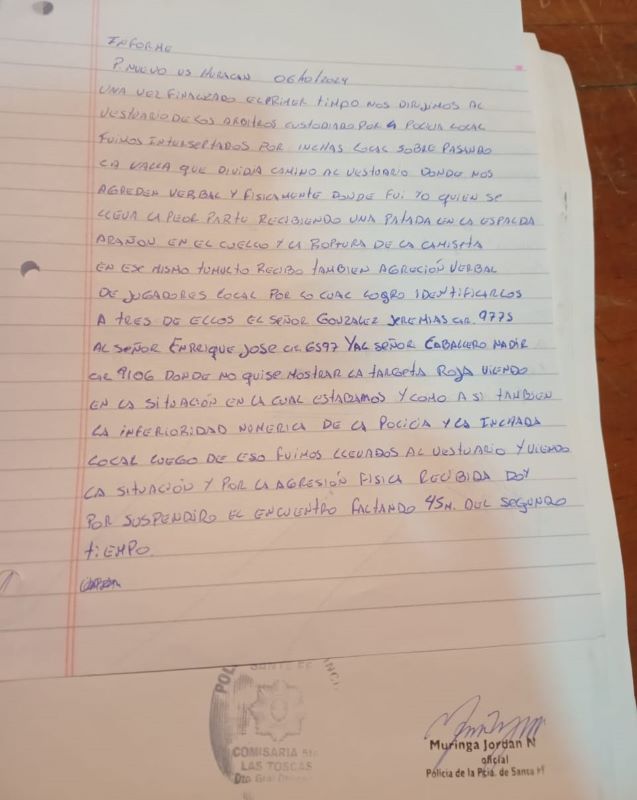 INFORME
P. NUEVO VS HURACAN 06/10/2024
UNA VEZ FINALIZADO EL PRIMER TIMPO NOS DIRIJIMOS AL
VESTUARIO DE LOS ARBITROS CUSTODIADO POR 4 POLICIA LOCAL
FUIMOS INTERSERTADOS POR INCHAS LOCAL SOBRE PASANDO
LA VALLA QUE DIVIDIA CAMINO AL VESTUARIO DONDE NOS
AGREDEN VERBAL Y FISICAMENTE DONDE FUI YO QUIEN SE
LLEVA LA PEOR PARTE RECIBIENDO UNA PATADA EN LA ESPALDA
ARAÑON EN EL CUELLO Y LA ROPTURA DE LA CAMISETA
EN ESE MISMO TUMULTO RECIBO TAMBIEN AGRECIÓN VERBAL
DE JUGADORES LOCAL POR LO CUAL LOGRO IDENTIFICARLOS
A TRES DE ELLOS EL SEÑOR GONZALEZ JEREMIAS CAR. 9775
AL SEÑOR ENRIQUE JOSE CAR 6597 Y AL SEÑOR CABALLERO NADIR
CAR 9106 DONDE NO QUISE MOSTRAR LA TARGETA ROJA VIENDO
EN LA SITUACIÓN EN LA CUAL ESTABAMOS Y COMO A SI TAMBIEN
LA INFERIORIDAD NUMERICA DE LA POLICIA Y LA INCHADA
LOCAL LUEGO DE ESO FUIMOS LLEVADOS AL VESTUARIO Y VIENDO
LA SITUACIÓN Y POR LA AGRESIÓN FISICA RECIBIDA DOY
POR SUSPENDIRO EL ENCUENTRO FALTANDO 45M. DEL SEGUNDO
TIEMPO.
COMISARIA
LAS TOSCAS
Muringa Jordan N
oficial
Policia de la Pcia. de Santa Fe